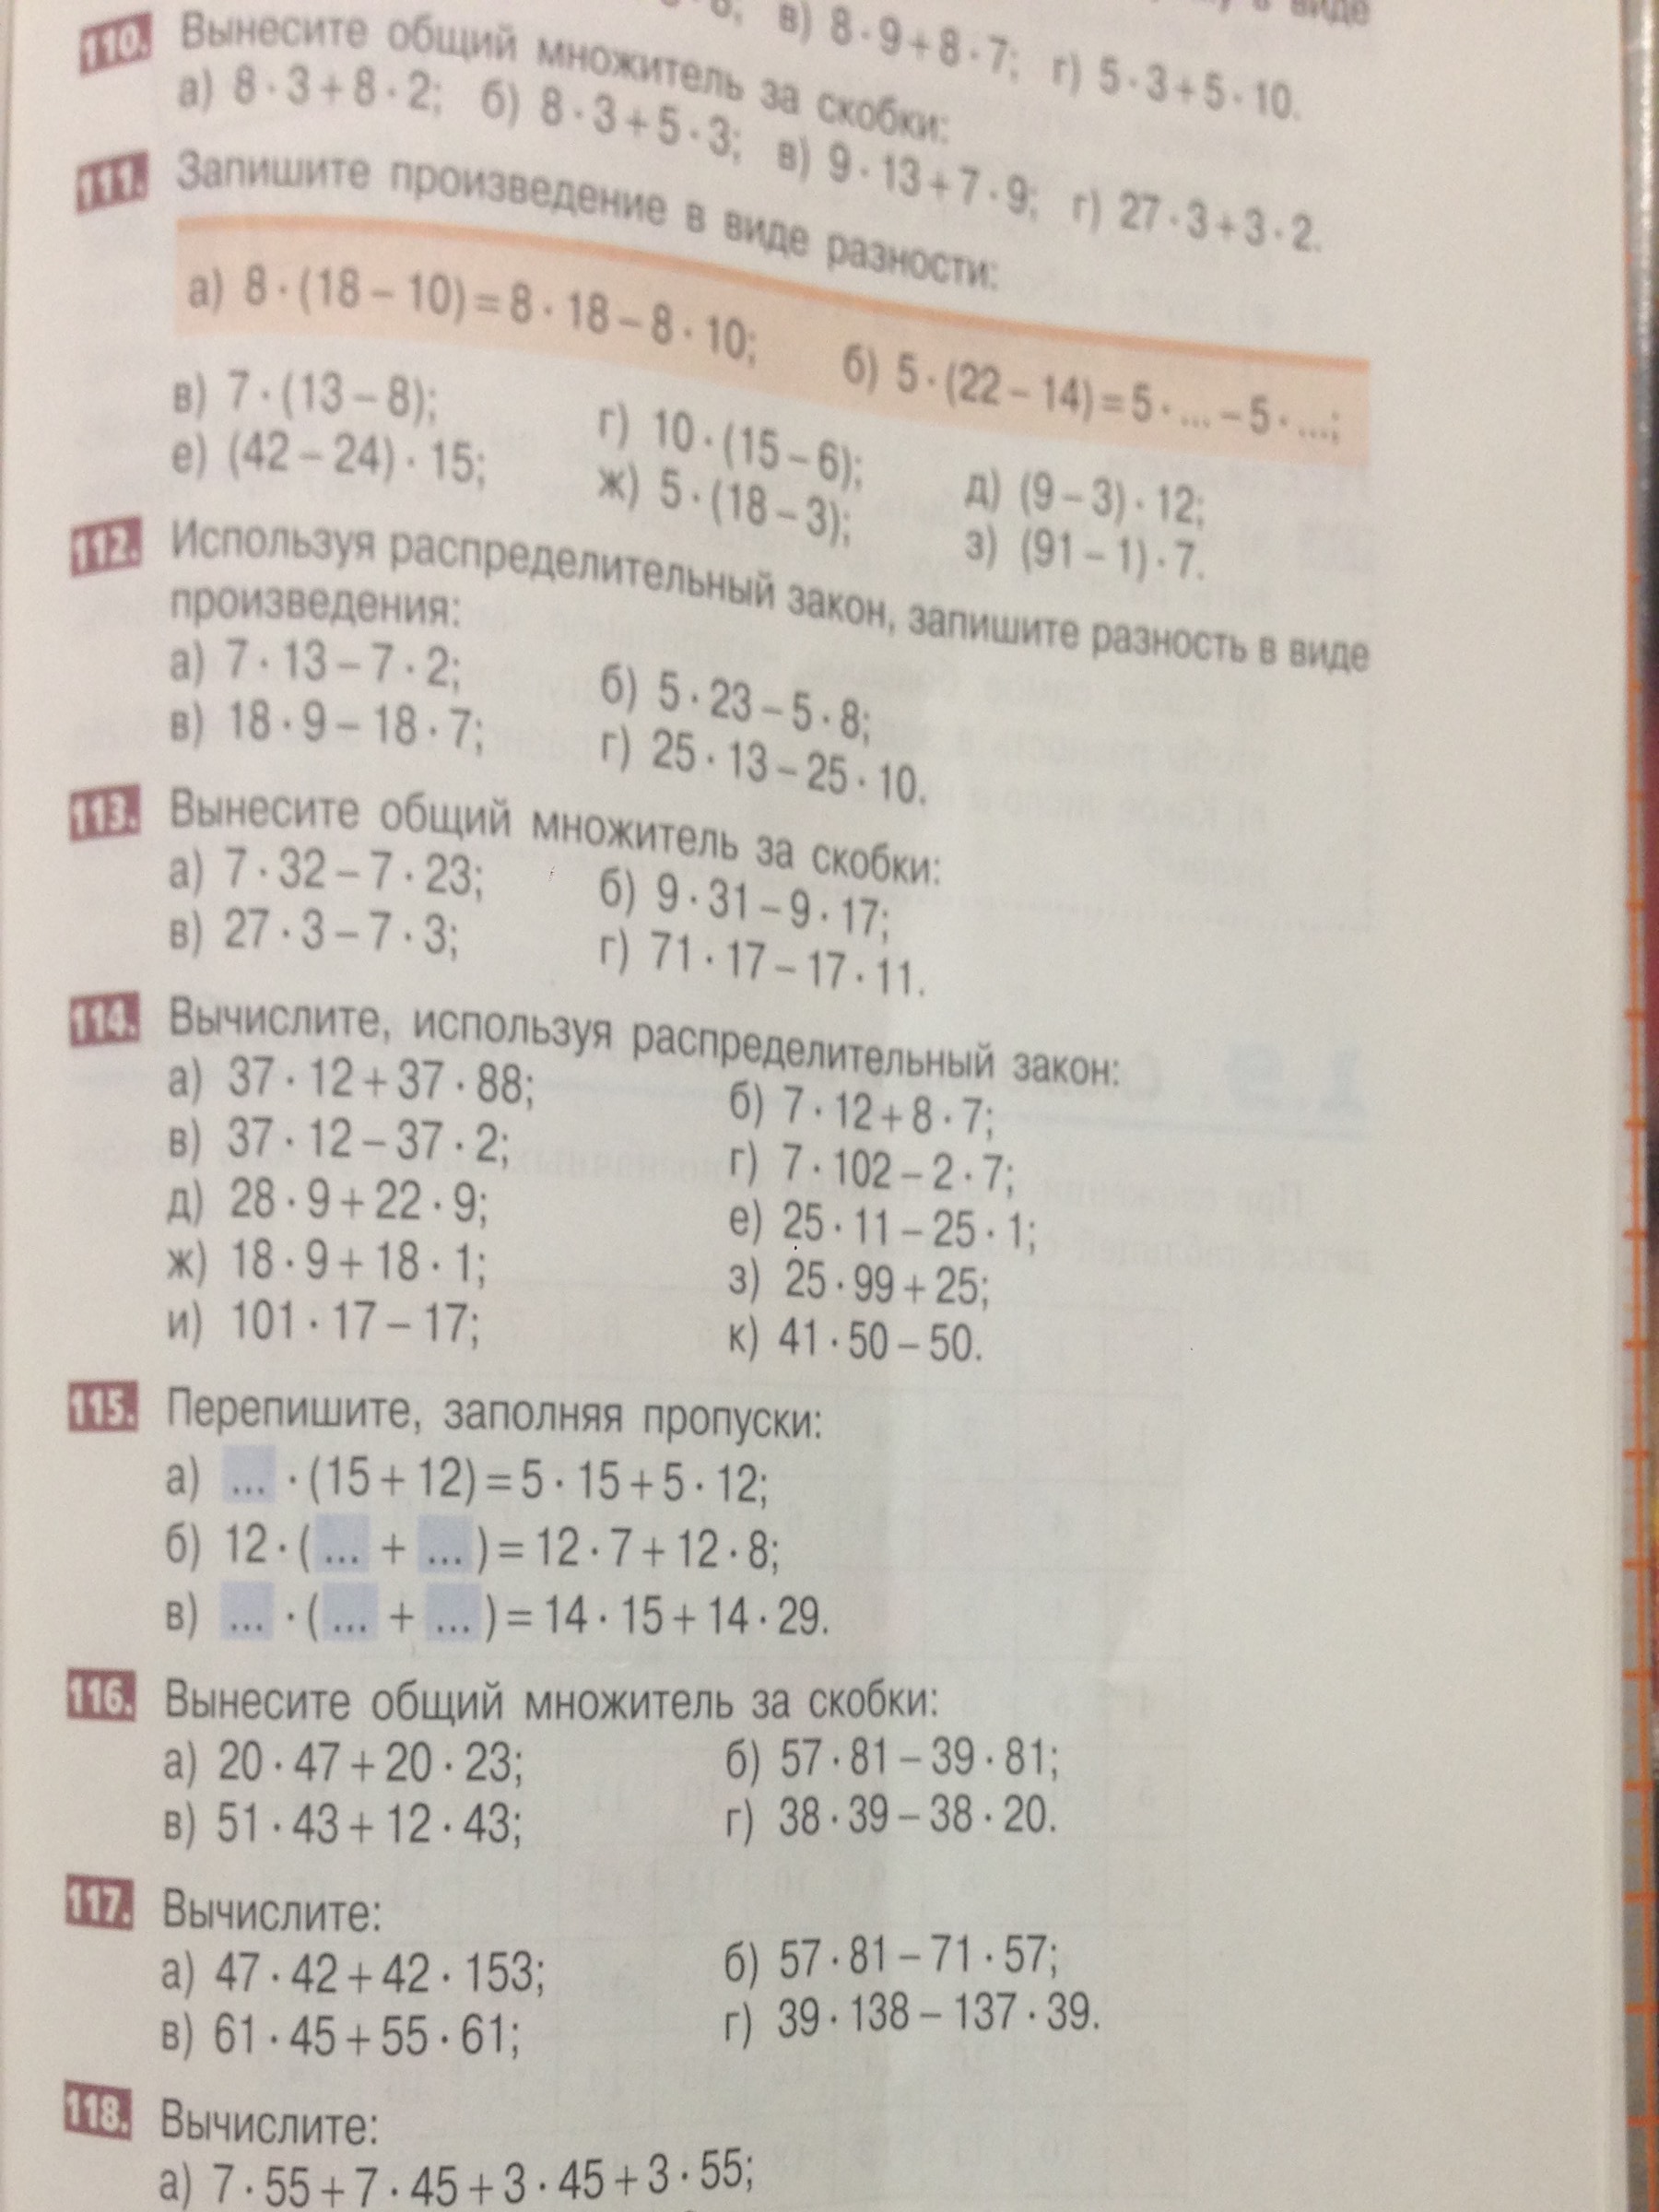 в) 8 · 9 + 8 · 7; г) 5 · 3 + 5 · 10.
110. Вынесите общий множитель за скобки:
а) 8 · 3 + 8 · 2; б) 8 · 3 + 5 · 3; в) 9 · 13 + 7 · 9; г) 27 · 3 + 3 · 2.
111. Запишите произведение в виде разности:
а) 8 · (18 – 10) = 8 · 18 – 8 · 10; б) 5 · (22 – 14) = 5 · ... – 5 · ...;
в) 7 · (13 – 8); г) 10 · (15 – 6); д) (9 – 3) · 12;
е) (42 – 24) · 15; ж) 5 · (18 – 3); з) (91 – 1) · 7.
112. Используя распределительный закон, запишите разность в виде
произведения:
а) 7 · 13 – 7 · 2; б) 5 · 23 – 5 · 8;
в) 18 · 9 – 18 · 7; г) 25 · 13 – 25 · 10.
113. Вынесите общий множитель за скобки:
а) 7 · 32 – 7 · 23; б) 9 · 31 – 9 · 17;
в) 27 · 3 – 7 · 3; г) 71 · 17 – 17 · 11.
114. Вычислите, используя распределительный закон:
а) 37 · 12 + 37 · 88; б) 7 · 12 + 8 · 7;
в) 37 · 12 – 37 · 2; г) 7 · 102 – 2 · 7;
д) 28 · 9 + 22 · 9; е) 25 · 11 – 25 · 1;
ж) 18 · 9 + 18 · 1; з) 25 · 99 + 25;
и) 101 · 17 – 17; к) 41 · 50 – 50.
115. Перепишите, заполняя пропуски:
а) ... · (15 + 12) = 5 · 15 + 5 · 12;
б) 12 · ( ... + ... ) = 12 · 7 + 12 · 8;
в) ... · ( ... + ... ) = 14 · 15 + 14 · 29.
116. Вынесите общий множитель за скобки:
а) 20 · 47 + 20 · 23; б) 57 · 81 – 39 · 81;
в) 51 · 43 + 12 · 43; г) 38 · 39 – 38 · 20.
117. Вычислите:
а) 47 · 42 + 42 · 153; б) 57 · 81 – 71 · 57;
в) 61 · 45 + 55 · 61; г) 39 · 138 – 137 · 39.
118. Вычислите:
а) 7 · 55 + 7 · 45 + 3 · 45 + 3 · 55;